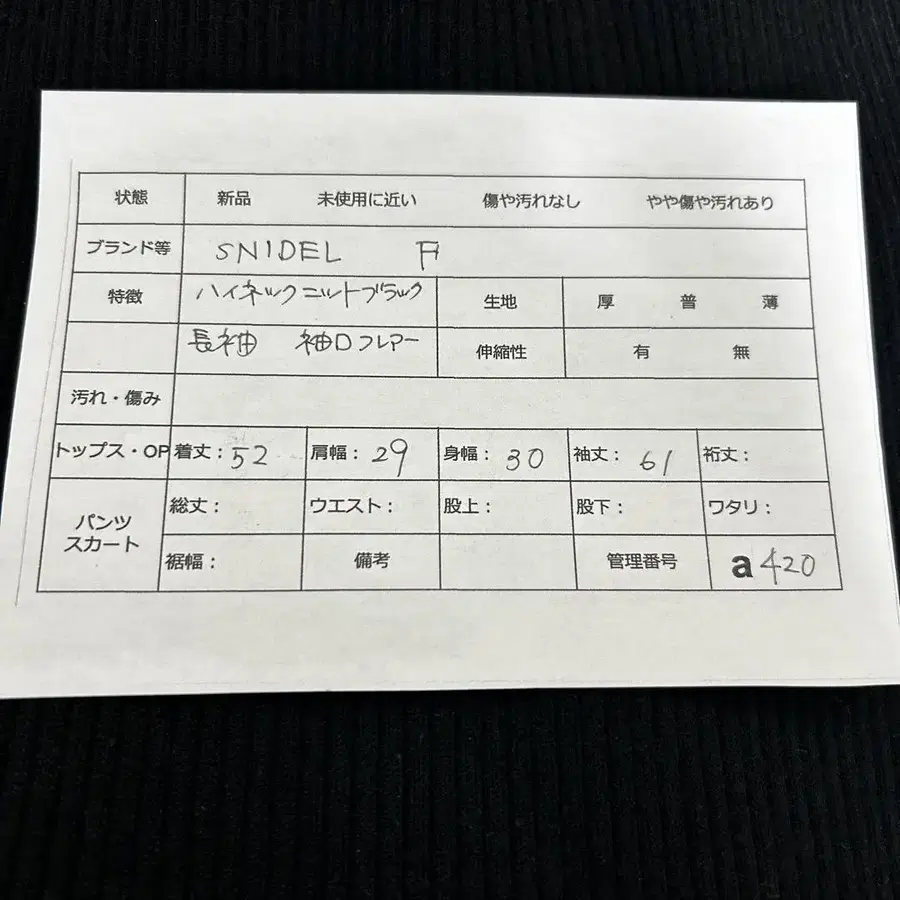 状態 新品 未使用に近い 傷や汚れなし やや傷や汚れあり
ブランド等 SNIDEL F
特徴 ハイネックニットブラック 生地 厚 普 薄
長袖 袖口フレアー 伸縮性 有 無
汚れ・傷み
トップス・OP 着丈:52 肩幅:29 身幅:30 袖丈:61 裄丈:
パンツ スカート 総丈: ウエスト: 股上: 股下: ワタリ:
裾幅: 備考 管理番号 a420